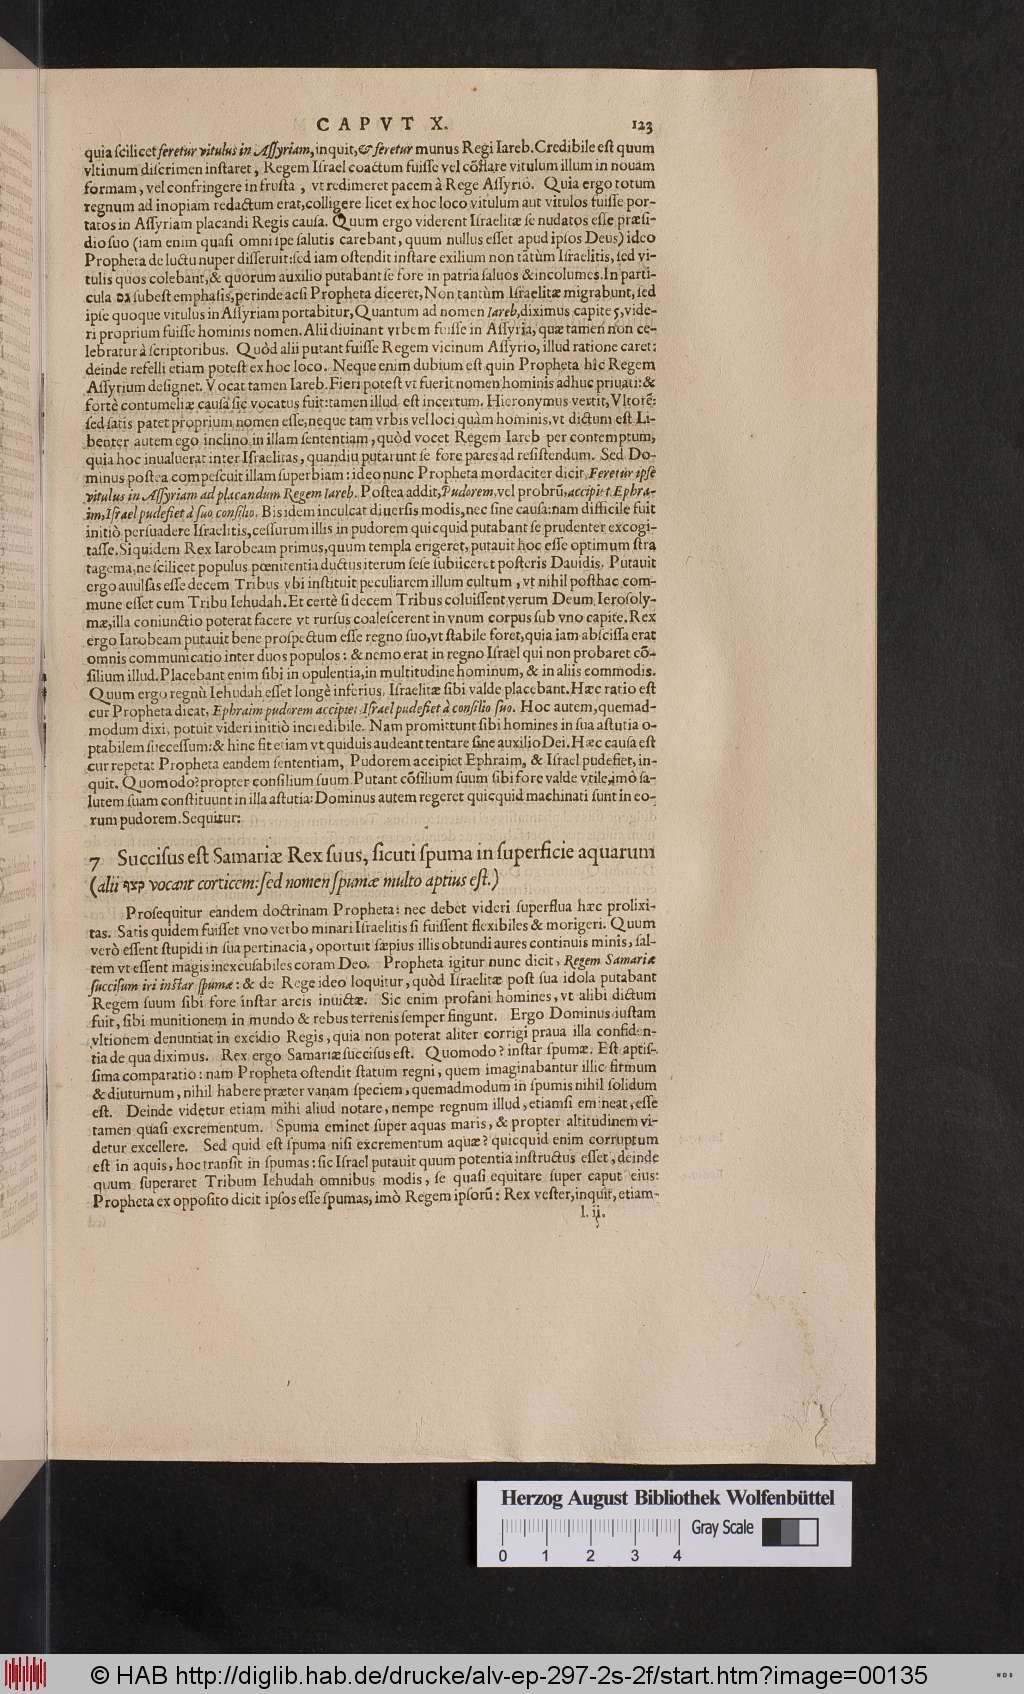 CAPVT X. 123
quia ſcilicet feretur vitulus in Aſſyriam, inquit, & feretur munus Regi Iareb. Credibile eſt quum
vltimum diſcrimen inſtaret, Regem Iſrael coactum fuiſſe vel cõflare vitulum illum in nouam
formam, vel confringere in fruſta, vt redimeret pacem à Rege Aſſyrio. Quia ergo totum
regnum ad inopiam redactum erat, colligere licet ex hoc loco vitulum aut vitulos fuiſſe por-
tatos in Aſſyriam placandi Regis cauſa. Quum ergo viderent Iſraelitæ ſe nudatos eſſe præſi-
dio ſuo (iam enim quaſi omni ſpe ſalutis carebant, quum nullus eſſet apud ipſos Deus) ideo
Propheta de luctu nuper diſſeruit: ſed iam oſtendit inſtare exilium non tãtùm Iſraelitis, ſed vi-
tulis quos colebant, & quorum auxilio putabant ſe fore in patria ſaluos & incolumes. In parti-
cula גם ſubeſt emphaſis, perinde acſi Propheta diceret, Non tantùm Iſraelitæ migrabunt, ſed
ipſe quoque vitulus in Aſſyriam portabitur, Quantum ad nomen Iareb, diximus capite 5, vide-
ri proprium fuiſſe hominis nomen. Alii diuinant vrbem fuiſſe in Aſſyria, quæ tamen non ce-
lebratur à ſcriptoribus. Quòd alii putant fuiſſe Regem vicinum Aſſyrio, illud ratione caret:
deinde refelli etiam poteſt ex hoc loco. Neque enim dubium eſt quin Propheta hîc Regem
Aſſyrium deſignet. Vocat tamen Iareb. Fieri poteſt vt fuerit nomen hominis adhuc priuati: &
fortè contumeliæ cauſa ſic vocatus fuit: tamen illud eſt incertum. Hieronymus vertit, Vltorẽ:
ſed ſatis patet proprium nomen eſſe, neque tam vrbis vel loci quàm hominis, vt dictum eſt Li-
benter autem ego inclino in illam ſententiam, quòd vocet Regem Iareb per contemptum,
quia hoc inualuerat inter Iſraelitas, quandiu putarunt ſe fore pares ad reſiſtendum. Sed Do-
minus poſtea compeſcuit illam ſuperbiam: ideo nunc Propheta mordaciter dicit, Feretur ipſe
vitulus in Aſſyriam ad placandum Regem Iareb. Poſtea addit, Pudorem, vel probrũ, accipiet Ephra-
im, Iſrael pudefiet à ſuo conſilio. Bis idem inculcat diuerſis modis, nec ſine cauſa: nam difficile fuit
initiò perſuadere Iſraelitis, ceſſurum illis in pudorem quicquid putabant ſe prudenter excogi-
taſſe. Siquidem Rex Iarobeam primus, quum templa erigeret, putauit hoc eſſe optimum ſtra
tagema, ne ſcilicet populus pœnitentia ductus iterum ſeſe ſubiiceret poſteris Dauidis. Putauit
ergo auulſas eſſe decem Tribus vbi inſtituit peculiarem illum cultum, vt nihil poſthac com-
mune eſſet cum Tribu Iehudah. Et certè ſi decem Tribus coluiſſent verum Deum Ieroſoly-
mæ, illa coniunctio poterat facere vt rurſus coaleſcerent in vnum corpus ſub vno capite. Rex
ergo Iarobeam putauit bene proſpectum eſſe regno ſuo, vt ſtabile foret, quia iam abſciſſa erat
omnis communicatio inter duos populos: & nemo erat in regno Iſrael qui non probaret cõ-
ſilium illud. Placebant enim ſibi in opulentia, in multitudine hominum, & in aliis commodis.
Quum ergo regnũ Iehudah eſſet longè inferius, Iſraelitæ ſibi valde placebant. Hæc ratio eſt
cur Propheta dicat, Ephraim pudorem accipiet, Iſrael pudefiet à conſilio ſuo. Hoc autem, quemad-
modum dixi, potuit videri initiò incredibile. Nam promittunt ſibi homines in ſua aſtutia o-
ptabilem ſucceſſum: & hinc fit etiam vt quiduis audeant tentare ſine auxilio Dei. Hæc cauſa eſt
cur repetat Propheta eandem ſententiam, Pudorem accipiet Ephraim, & Iſrael pudefiet, in-
quit. Quomodo? propter conſilium ſuum. Putant cõſilium ſuum ſibi fore valde vtile, imò ſa-
lutem ſuam conſtituunt in illa aſtutia: Dominus autem regeret quicquid machinati ſunt in eo-
rum pudorem. Sequitur:
7 Succiſus eſt Samariæ Rex ſuus, ſicuti ſpuma in ſuperficie aquarum
(alii קצף vocant corticem: ſed nomen ſpumæ multo aptius eſt.)
Proſequitur eandem doctrinam Propheta: nec debet videri ſuperflua hæc prolixi-
tas. Satis quidem fuiſſet vno verbo minari Iſraelitis ſi fuiſſent flexibiles & morigeri. Quum
verò eſſent ſtupidi in ſua pertinacia, oportuit ſæpius illis obtundi aures continuis minis, ſal-
tem vt eſſent magis inexcuſabiles coram Deo. Propheta igitur nunc dicit, Regem Samariæ
ſucciſum iri inſtar ſpumæ: & de Rege ideo loquitur, quòd Iſraelitæ poſt ſua idola putabant
Regem ſuum ſibi fore inſtar arcis inuictæ. Sic enim profani homines, vt alibi dictum
fuit, ſibi munitionem in mundo & rebus terrenis ſemper fingunt. Ergo Dominus iuſtam
vltionem denuntiat in excidio Regis, quia non poterat aliter corrigi praua illa confiden-
tia de qua diximus. Rex ergo Samariæ ſucciſus eſt. Quomodo? inſtar ſpumæ. Eſt aptiſ-
ſima comparatio: nam Propheta oſtendit ſtatum regni, quem imaginabantur illic firmum
& diuturnum, nihil habere præter vanam ſpeciem, quemadmodum in ſpumis nihil ſolidum
eſt. Deinde videtur etiam mihi aliud notare, nempe regnum illud, etiamſi emineat, eſſe
tamen quaſi excrementum. Spuma eminet ſuper aquas maris, & propter altitudinem vi-
detur excellere. Sed quid eſt ſpuma niſi excrementum aquæ? quicquid enim corruptum
eſt in aquis, hoc tranſit in ſpumas: ſic Iſrael putauit quum potentia inſtructus eſſet, deinde
quum ſuperaret Tribum Iehudah omnibus modis, ſe quaſi equitare ſuper caput eius:
Propheta ex oppoſito dicit ipſos eſſe ſpumas, imò Regem ipſorũ: Rex veſter, inquit, etiam-
l. ij.
Herzog August Bibliothek Wolfenbüttel
Gray Scale
0 1 2 3 4
© HAB http://diglib.hab.de/drucke/alv-ep-297-2s-2f/start.htm?image=00135
WDB